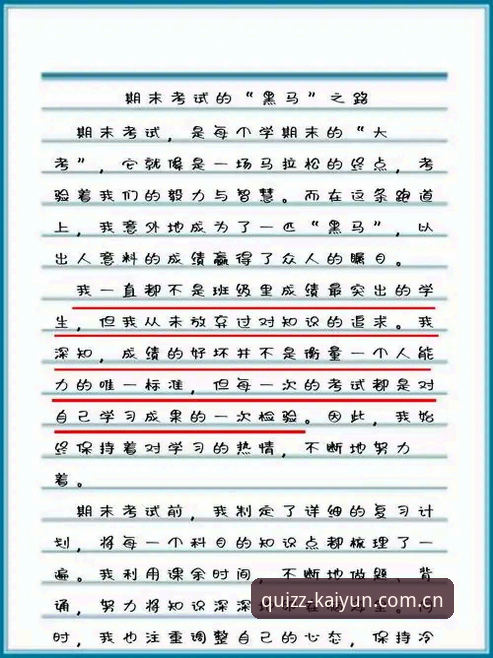 期末考试的“黑马”之路
期末考试，是每个学期末的“大
考”，它就像是一场马拉松的终点，考
验着我们的毅力与智慧。而在这条跑道
上，我意外地成为了一匹“黑马”，以
出人意料的成绩赢得了众人的瞩目。
我一直都不是班级里成绩最突出的学
生，但我从未放弃过对知识的追求。我
深知，成绩的好坏并不是衡量一个人能
力的唯一标准，但每一次的考试都是对
自己学习成果的一次检验。因此，我始
终保持着对学习的热情，不断地努力
着。
期末考试前，我制定了详细的复习计
划，将每一个科目的知识点都梳理了一
遍。我利用课余时间，不断地做题、背
诵，努力将知识深深
quizz-kaiyun.com.cn
时，我也注重调整自己的心态，保持冷